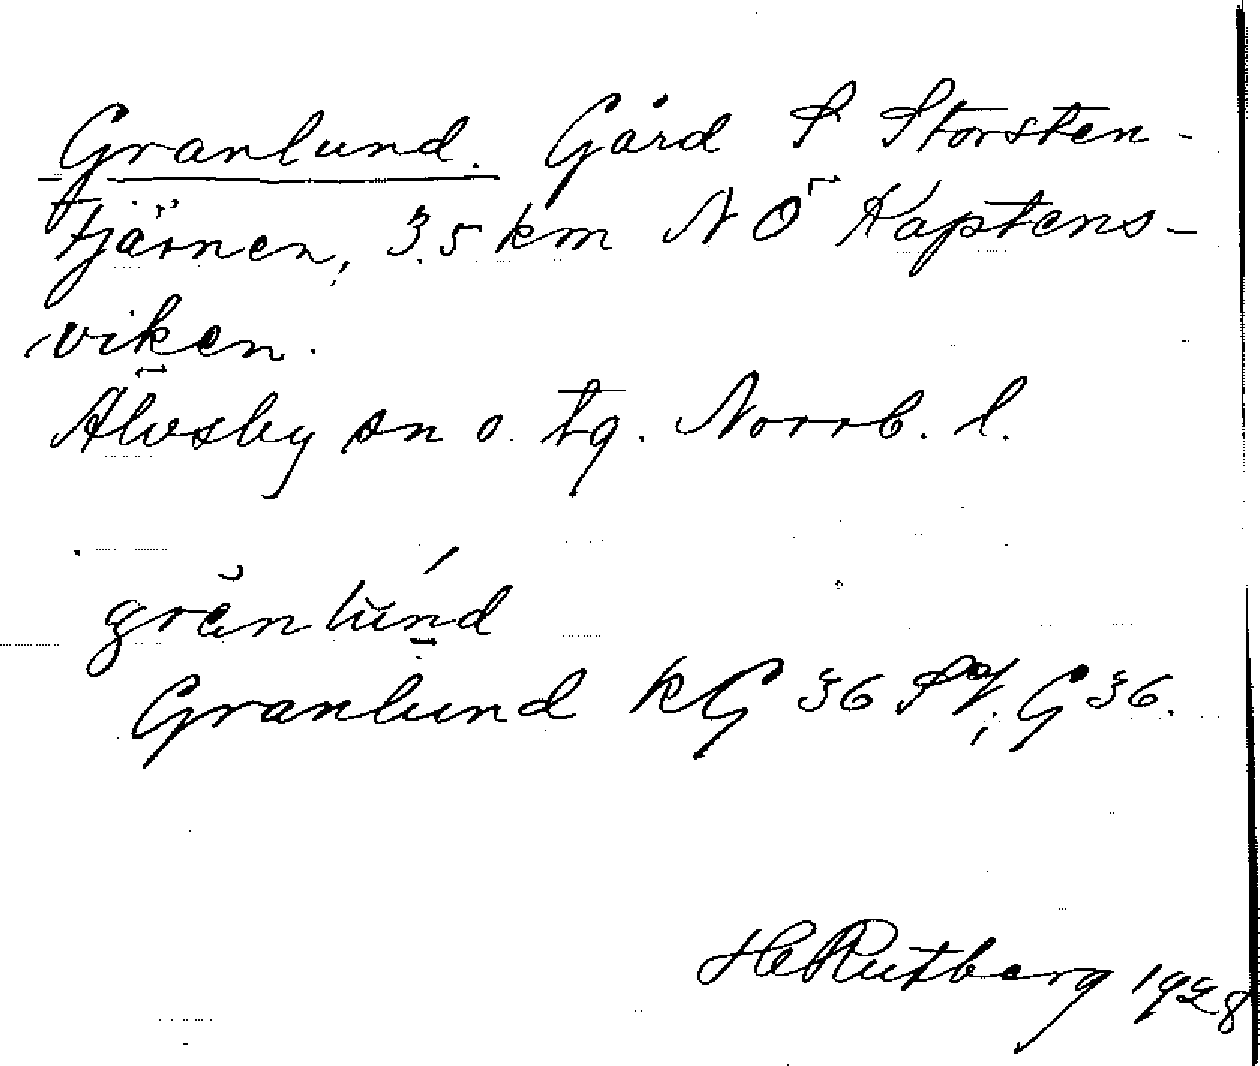 Granlund. Gård S Storsten-
tjärnen, 3.5 km NÖ Kaptens-
viken.
Älvsby sn o. tg. Norrb. l.
grănlŭnd
Granlund kG 36 SV; G 36.
HRutberg 1928